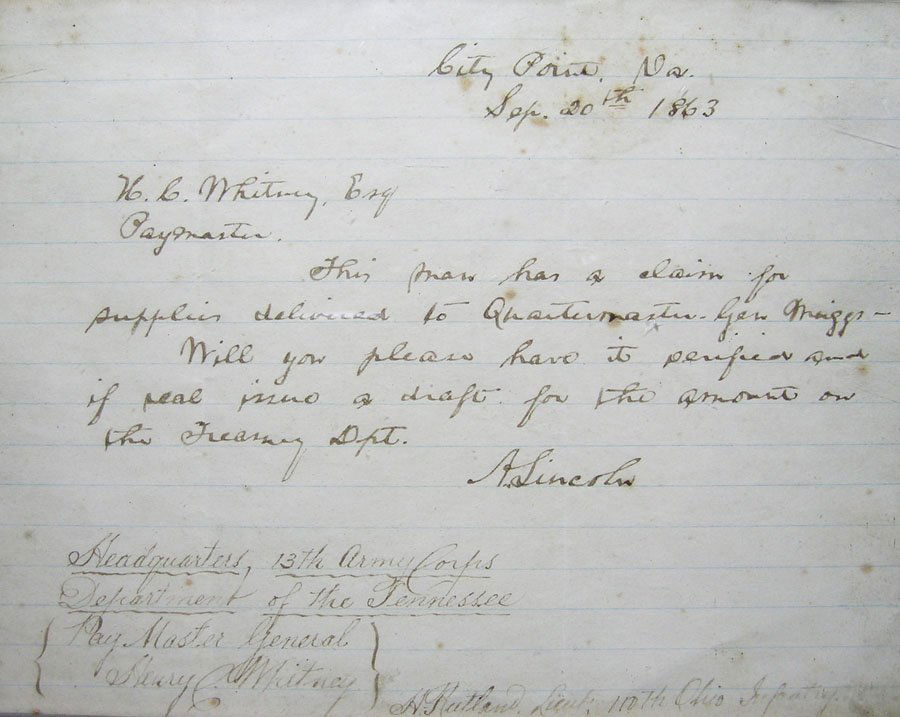 City Point, Va.
Sep. 20th 1863
H. C. Whitney, Esq
Paymaster.
This man has a claim for
supplies delivered to Quartermaster-Gen Miggs-
Will you please have it verified and
if real issue a draft for the amount on
the Treasury Dpt.
A. Lincoln
Headquarters, 13th Army Corps
Department of the Tennessee
Pay Master General
Henry C. Whitney
H Rutland, Lieut, 110th Ohio Infantry